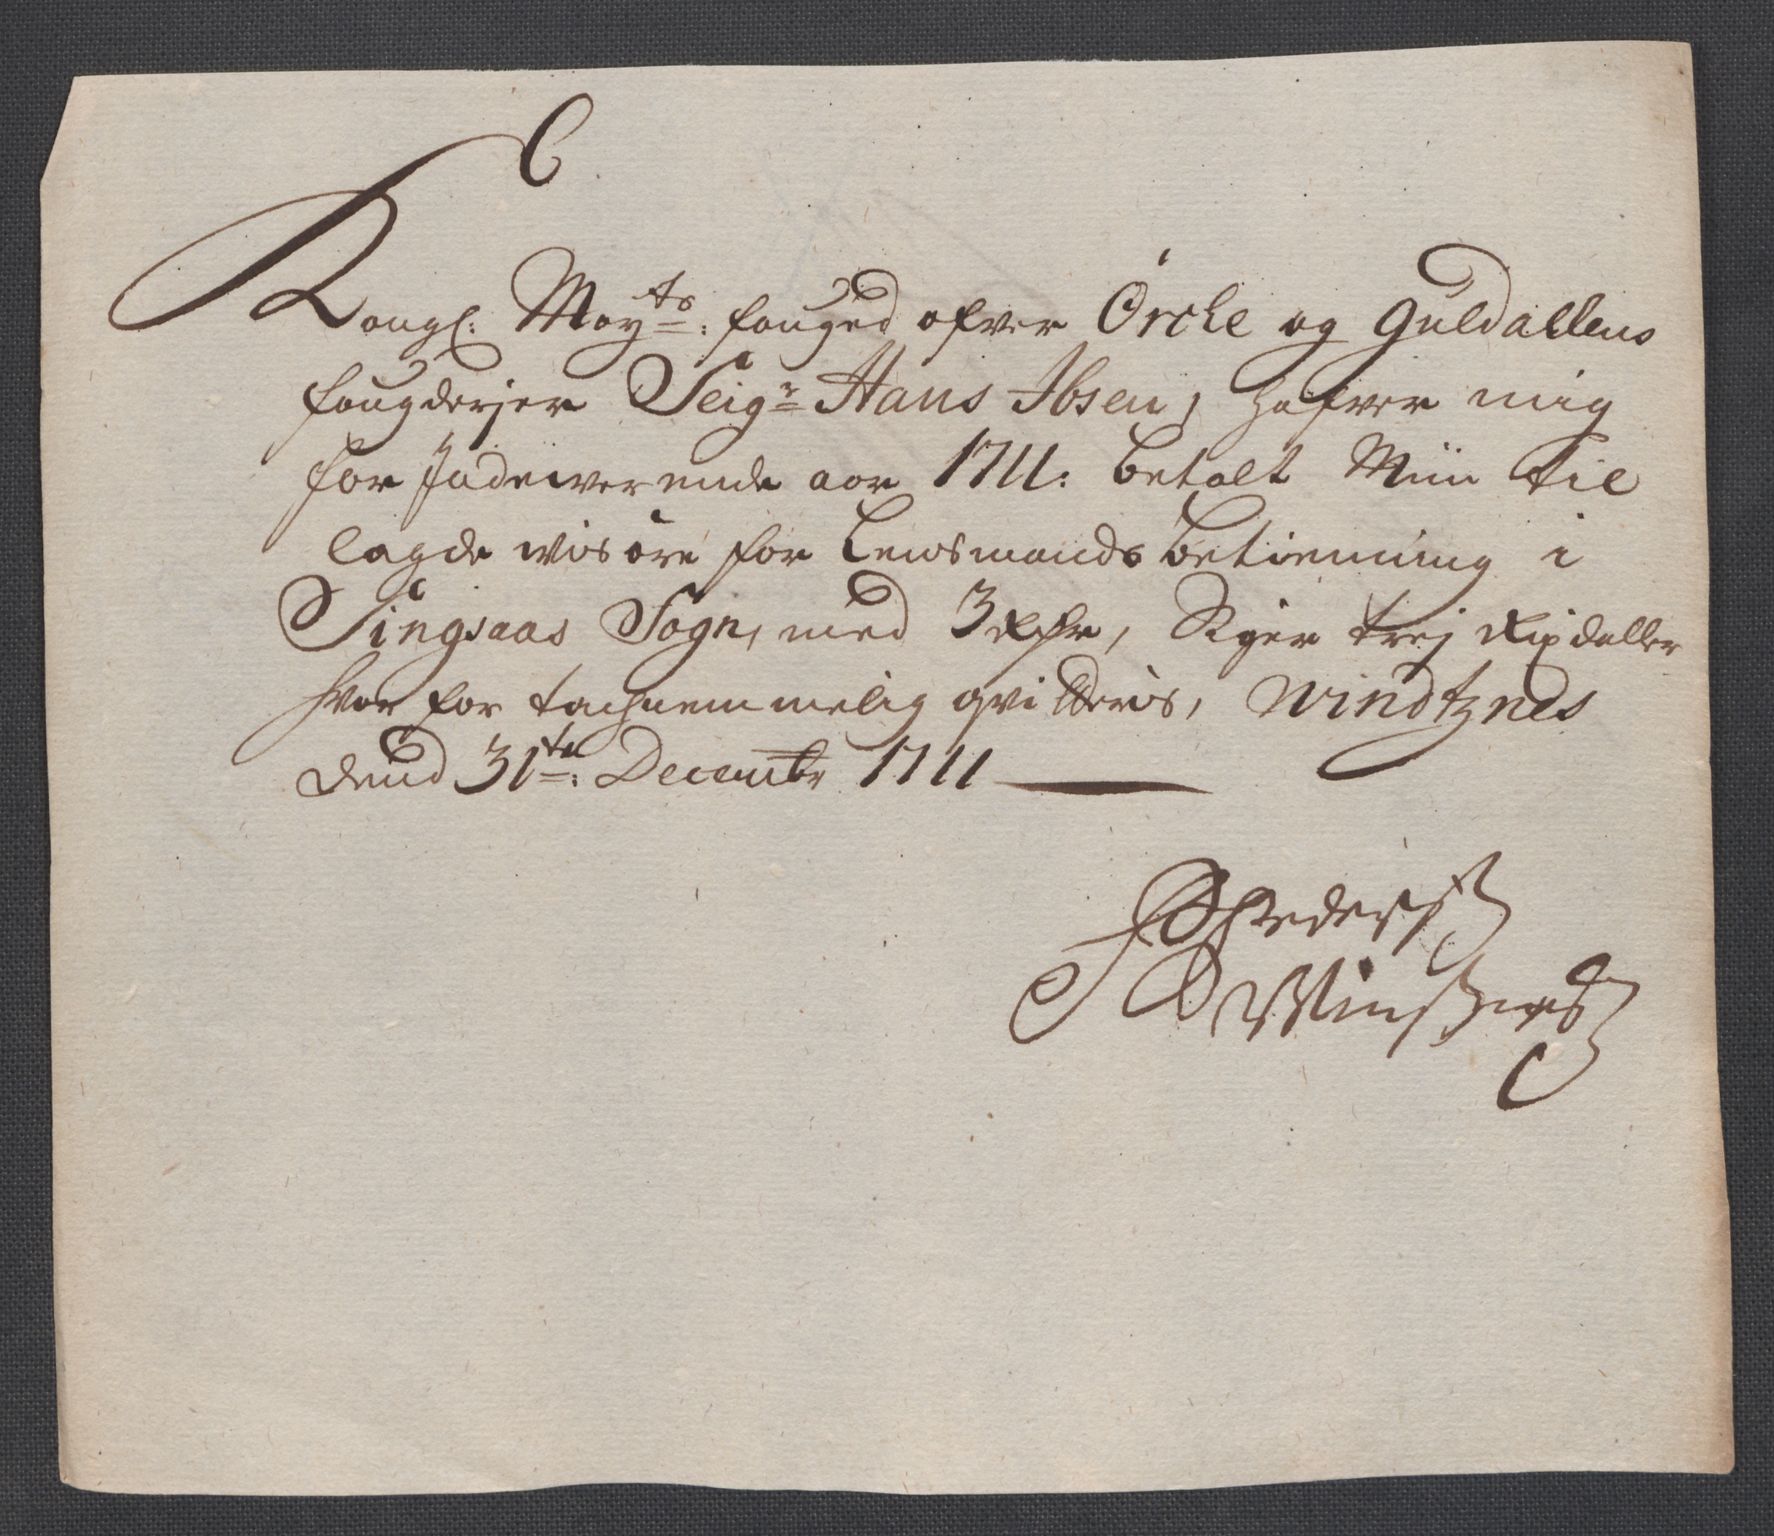 Kongl: Mayts: fouged ofver Örcke og Guldallens
fougderjer Seigr Hans Ibsen, hafver mig
for Indewerende aar 1711: betalt Miin til
lagde wisöre for Lensmands betienning i
Singsaas Sogn, med 3 Rdr, Siger trej Rixdaller
hvor for tachnemmelig qvitteris, Windtznes
dend 31te: Decembr 1711
Pedersen
Winsnes